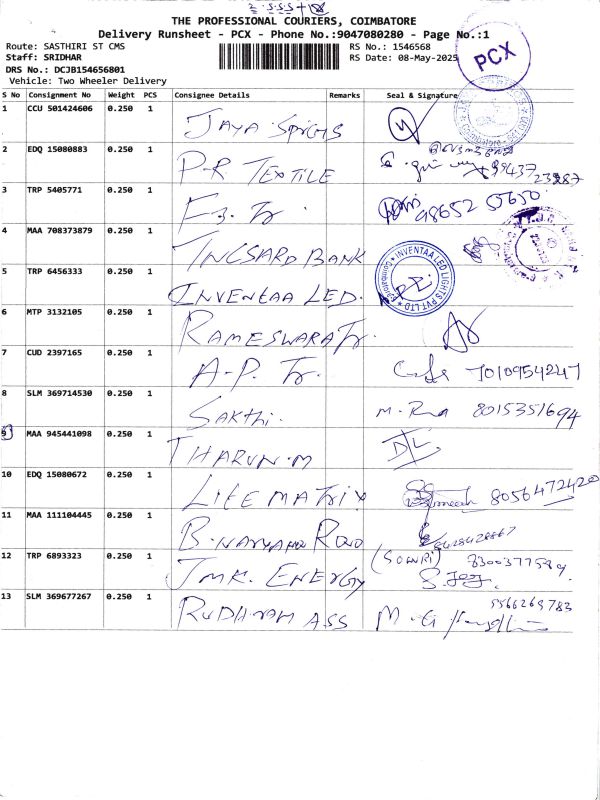 THE PROFESSIONAL COURIERS, COIMBATORE
Delivery Runsheet - PCX - Phone No.:9047080280 - Page No.:1
Route: SASTHIRI ST CMS
RS No.: 1546568
Staff: SRIDHAR
RS Date: 08-May-2025
DRS No.: DCJB154656801
Vehicle: Two Wheeler Delivery
PCX
S No Consignment No Weight PCS Consignee Details Remarks Seal & Signature
1 CCU 501424606 0.250 1 JAYA
2 EDQ 15080883 0.250 1 P-R TEXTILE
3 TRP 5405771 0.250 1 98652 55650
4 MAA 708373879 0.250 1 BANK
5 TRP 6456333 0.250 1 INVENTAA LED. INVENTAA LED LIGHTS PVT LTD
6 MTP 3132105 0.250 1 RAMESWARA Tr.
7 CUD 2397165 0.250 1 A-P. Tr. 7010954247
8 SLM 369714530 0.250 1 SAKTHI. 8015351694
9 MAA 945441098 0.250 1 THARUN.M
10 EDQ 15080672 0.250 1 LIFE MATRIX 8056472420
11 MAA 111104445 0.250 1 B.
12 TRP 6893323 0.250 1 JMK. ENERGY (SOWRI)
13 SLM 369677267 0.250 1 RUDHRAM ASS